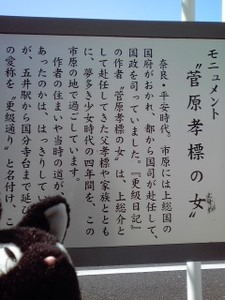 モニュメント
“菅原孝標の女”
奈良・平安時代。市原には上総国の
国府がおかれ、都から国司が赴任して、
国政を司っていました。『更級日記』
の作者“菅原孝標の女”は、上総介と
して赴任してきた父孝標や家族ととも
に、夢多き少女時代の四年間を、この
市原の地で過ごしています。
作者の住まいや当時の道が、
あったのかは、はっきりしてい
が、五井駅から国分寺台まで延び
の愛称を“更級通り”と名付け、こ